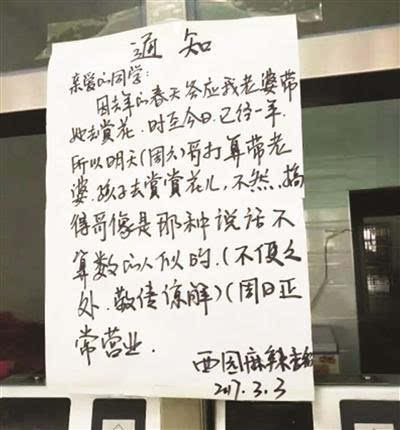 通知
亲爱的同学：
因去年的春天答应我老婆带
她去赏花．时至今日．已经一年．
所以明天(周六)哥打算带老
婆．孩子去赏赏花儿，不然，搞
得哥像是那种说话不
算数的人似的．(不便之
处．敬请谅解)(周日正
常营业．
西园麻辣香锅
2017.3.3